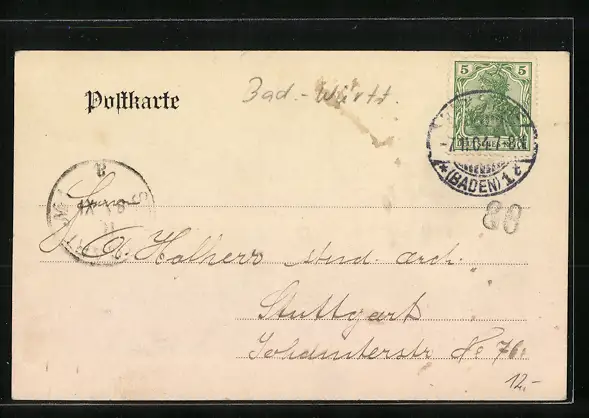 Postkarte
Bad.-Württ.
5 5
-7.11.04.7-8N
*(BADEN)1t
86
Herrn
A. Halherr stud. arch.
Stuttgart
Johanniterstr No 76.
12.-